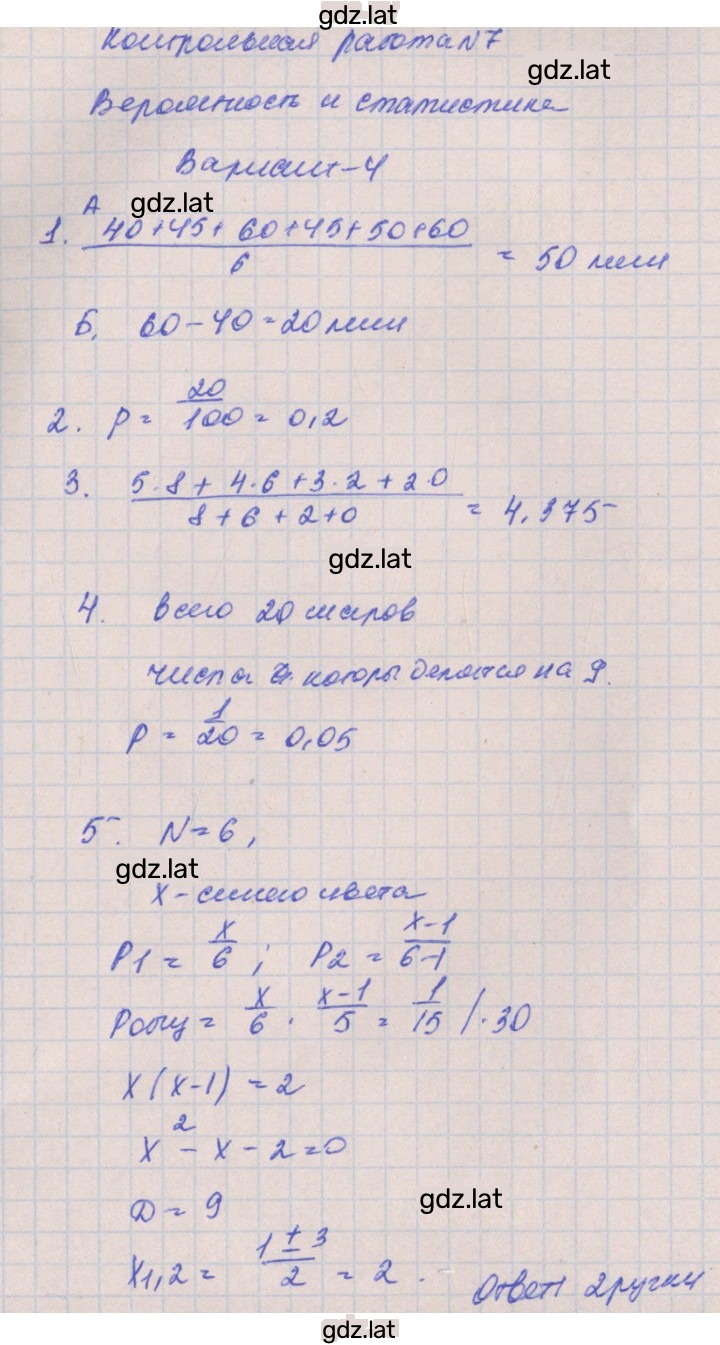 gdz.lat
Контрольная работа N7
gdz.lat
Вероятность и статистика
Вариант-4
gdz.lat
1. А (40+45+60+45+50+60)/6 = 50 мин
Б. 60-40=20 мин
2. P = 20/100 = 0,2
3. (5·8+4·6+3·2+2·0)/(8+6+2+0) = 4,375
gdz.lat
4. Всего 20 шаров
числа которы делятся на 9.
P = 1/20 = 0,05
5. N=6,
gdz.lat
X-синего цвета
P1 = x/6 ; P2 = (x-1)/(6-1)
Pобщ = x/6 · (x-1)/5 = 1/15 /·30
X(X-1) = 2
X² - X - 2=0
D = 9
gdz.lat
X1,2 = (1±3)/2 = 2.
Ответ: 2 ручки
gdz.lat